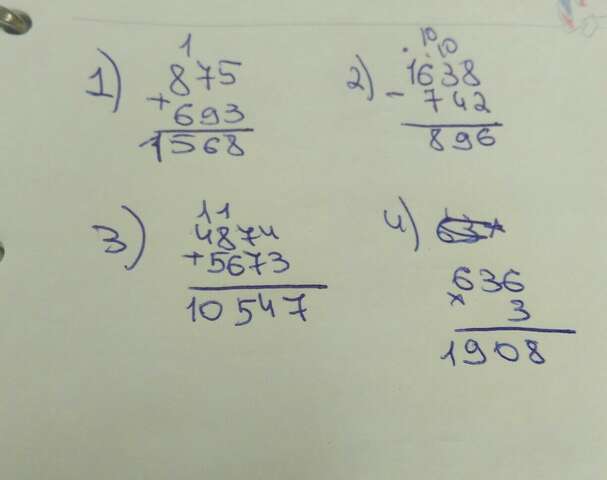 1)
1
875
+693
1568
2)
. 10 10
1638
- 742
896
3)
11
4874
+5673
10547
4)
636
× 3
1908